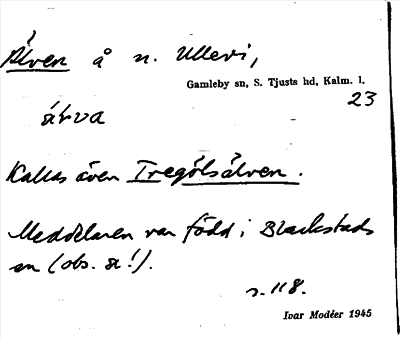 Älven å n. Ullevi,
Gamleby sn, S. Tjusts hd, Kalm. l.
23
álva
Kallas även Tregölsälven.
Meddelaren var född i Blackstads
sn (obs. a!).
s. 118.
Ivar Modéer 1945